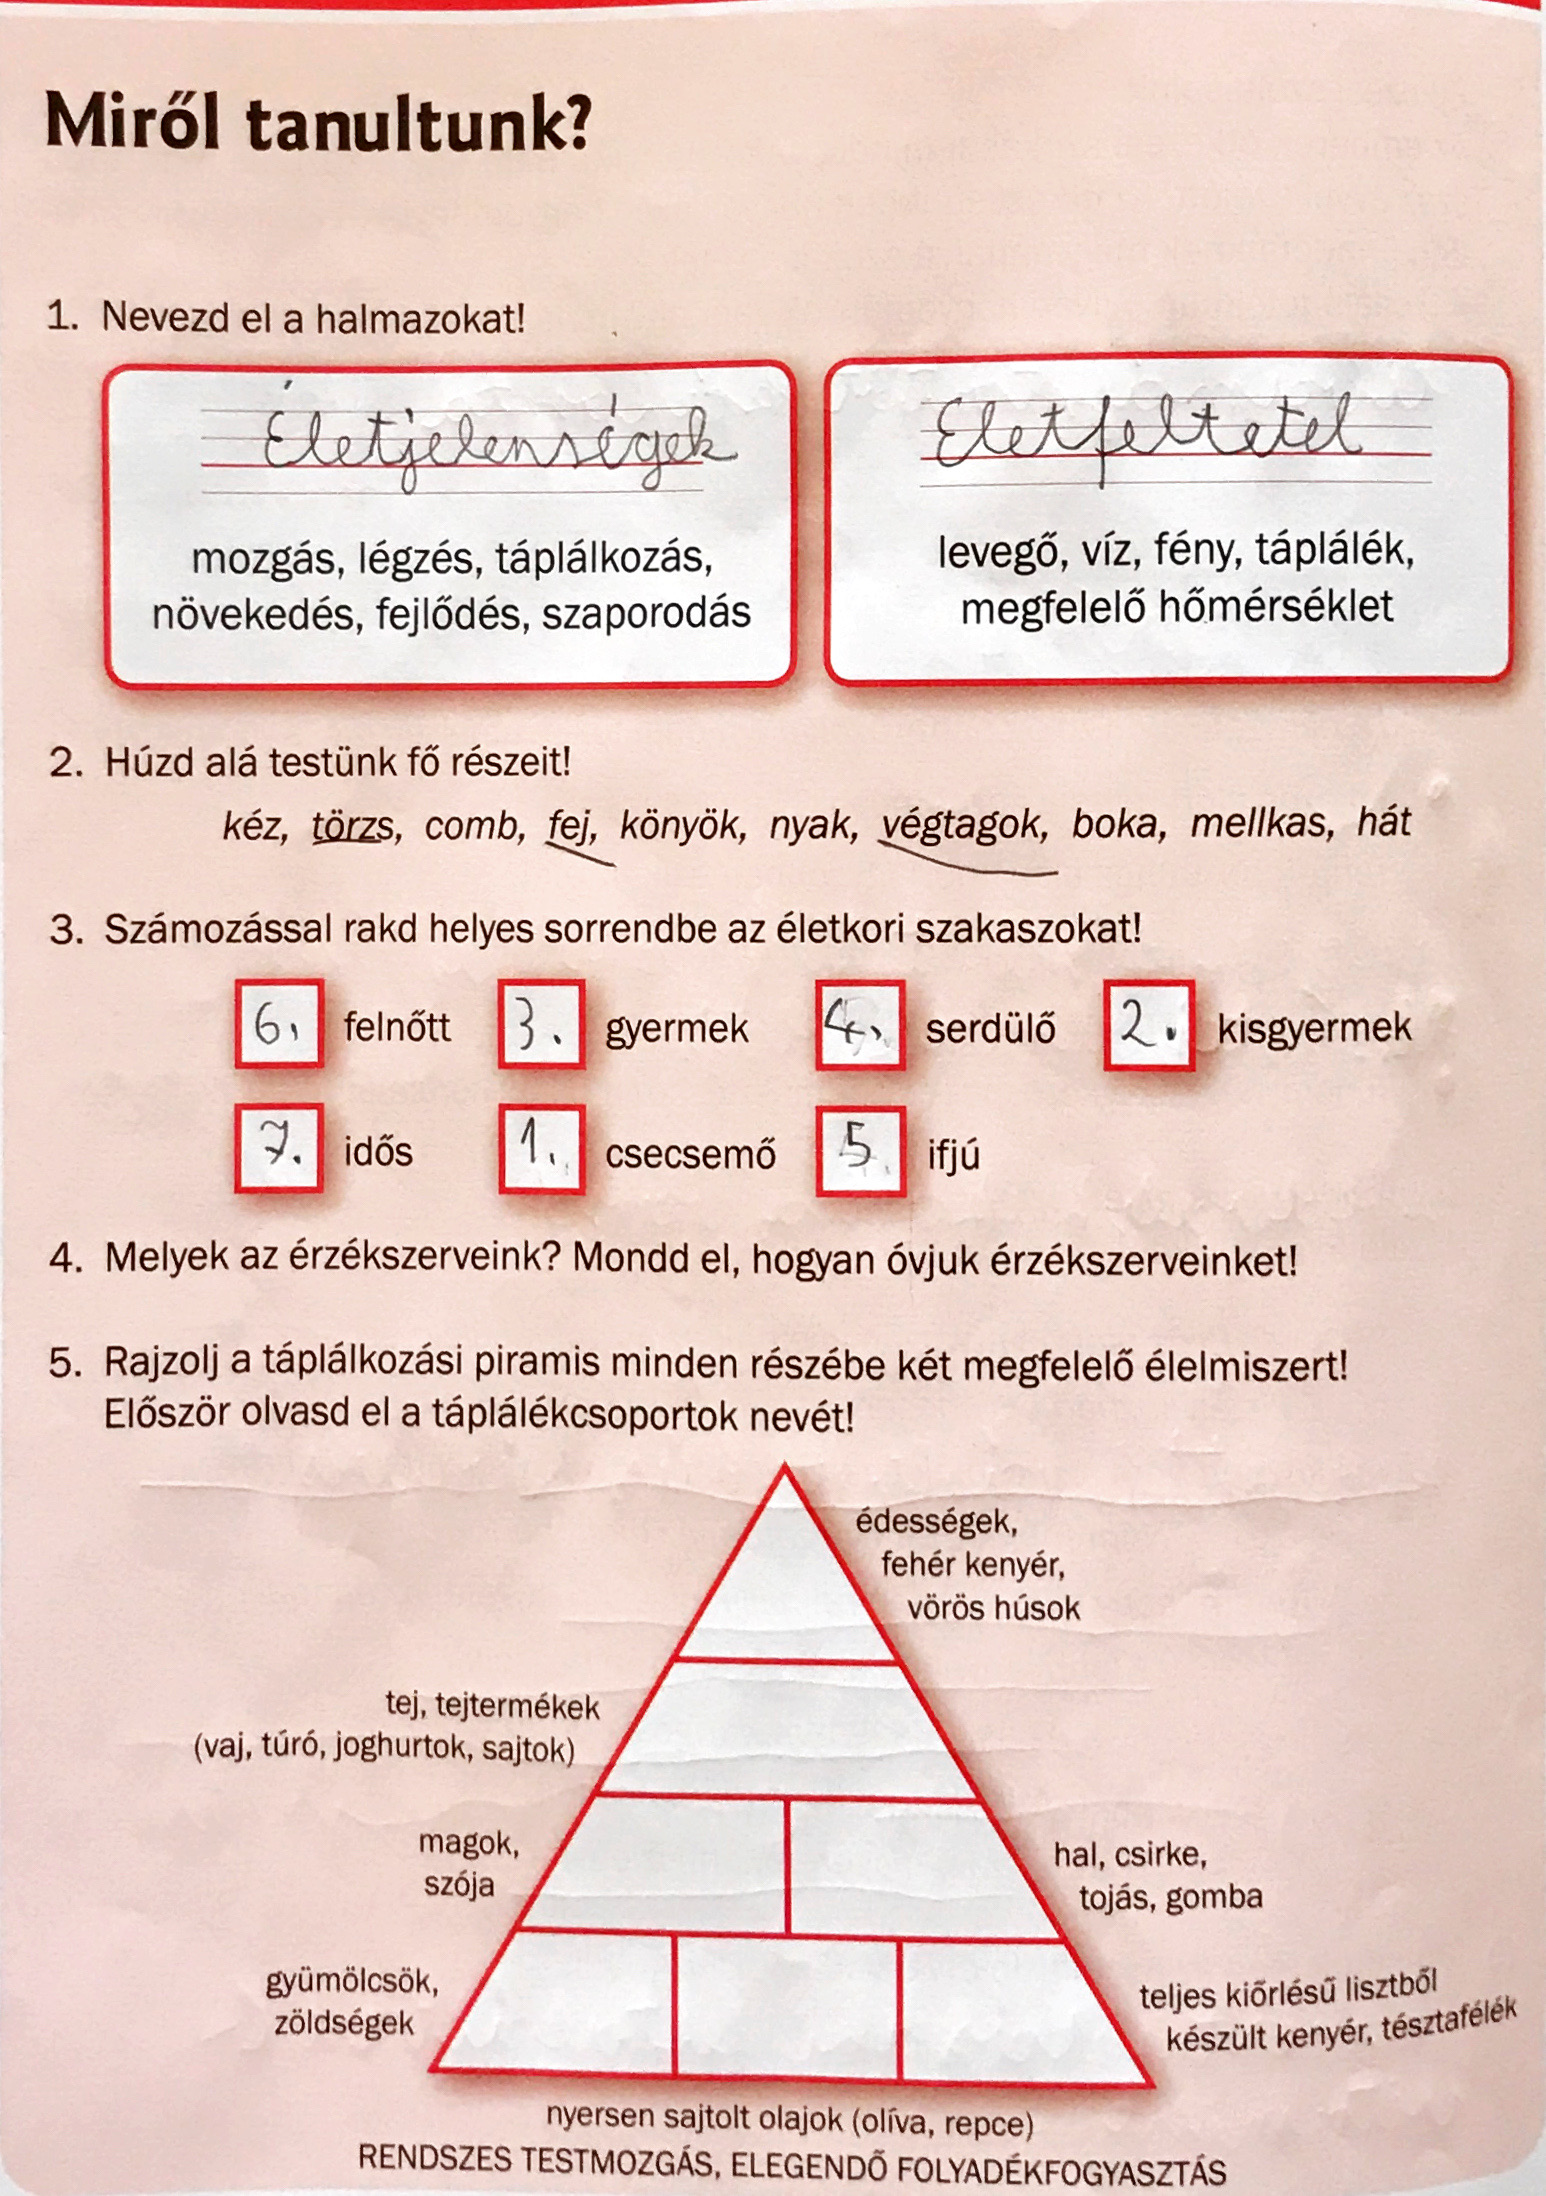 Miről tanultunk?
1. Nevezd el a halmazokat!
Életjelenségek
mozgás, légzés, táplálkozás,
növekedés, fejlődés, szaporodás
Eletfeltetel
levegő, víz, fény, táplálék,
megfelelő hőmérséklet
2. Húzd alá testünk fő részeit!
kéz, törzs, comb, fej, könyök, nyak, végtagok, boka, mellkas, hát
3. Számozással rakd helyes sorrendbe az életkori szakaszokat!
6. felnőtt 3. gyermek 4. serdülő 2. kisgyermek
7. idős 1. csecsemő 5. ifjú
4. Melyek az érzékszerveink? Mondd el, hogyan óvjuk érzékszerveinket!
5. Rajzolj a táplálkozási piramis minden részébe két megfelelő élelmiszert!
Először olvasd el a táplálékcsoportok nevét!
édességek,
fehér kenyér,
vörös húsok
tej, tejtermékek
(vaj, túró, joghurtok, sajtok)
magok,
szója
hal, csirke,
tojás, gomba
gyümölcsök,
zöldségek
teljes kiőrlésű lisztből
készült kenyér, tésztafélék
nyersen sajtolt olajok (olíva, repce)
RENDSZES TESTMOZGÁS, ELEGENDŐ FOLYADÉKFOGYASZTÁS